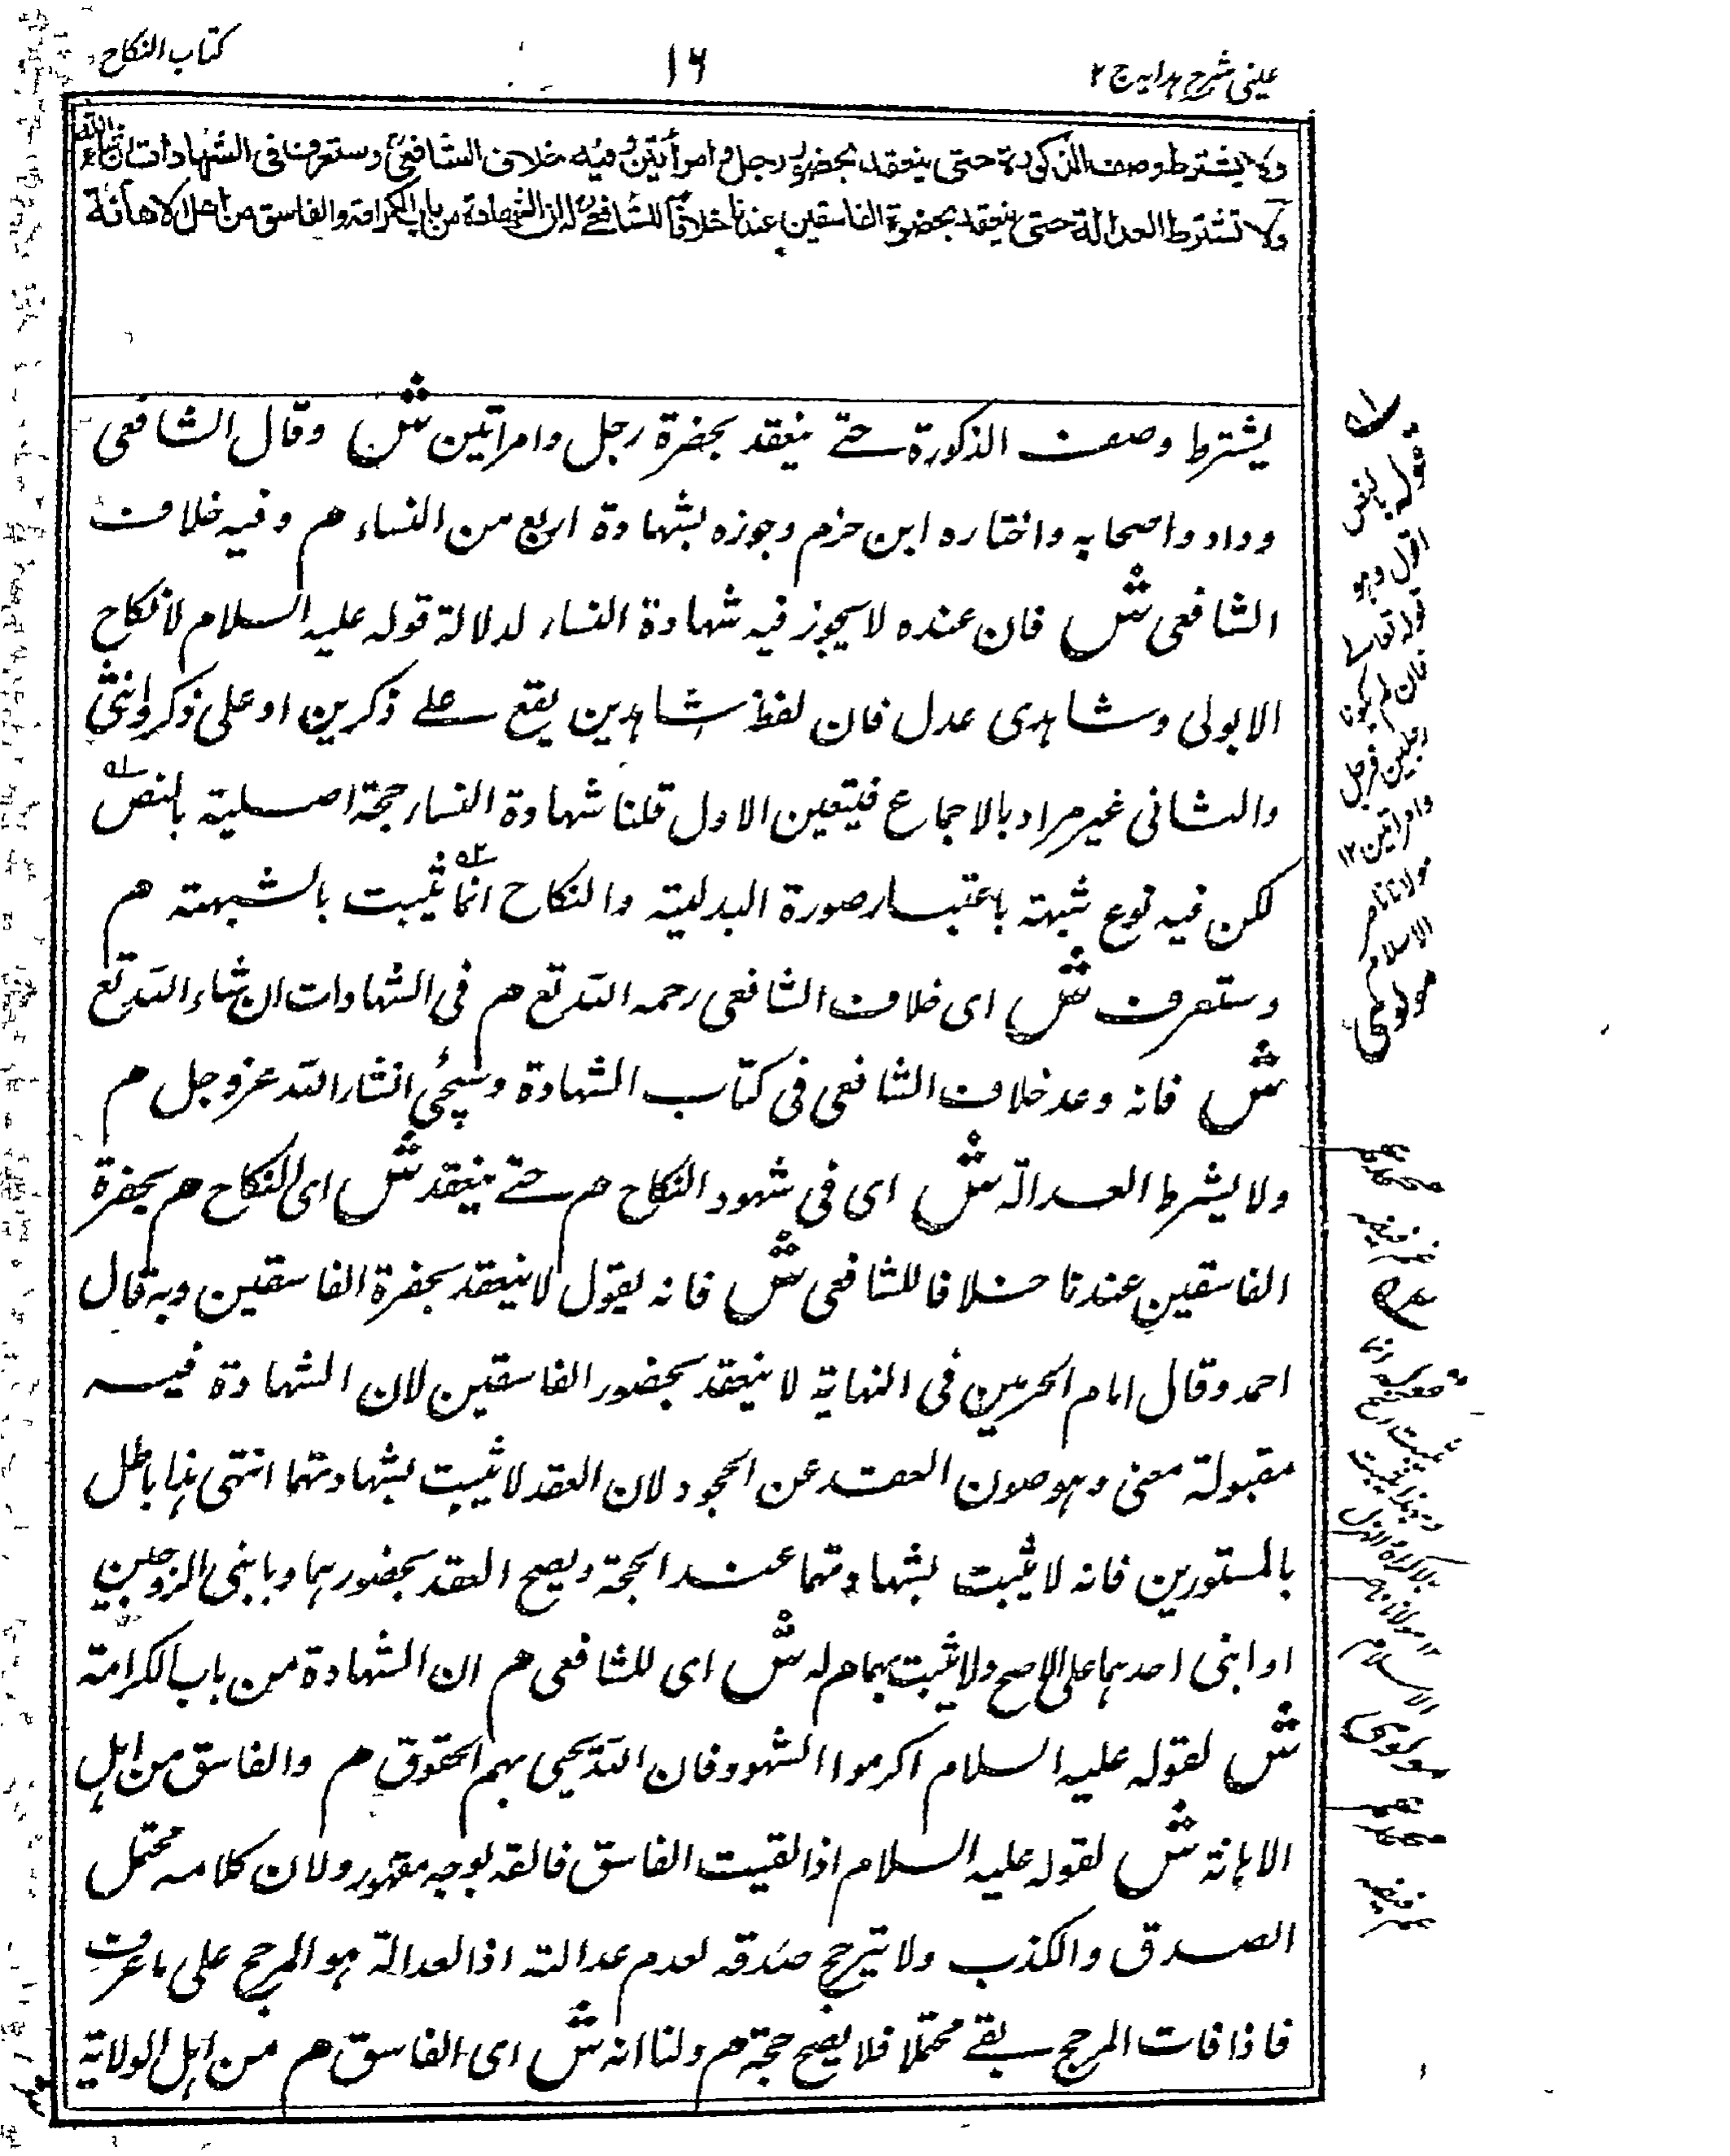 عینی شرح ہدایہ ج ۲
۱۶
کتاب النکاح
ولا یشترط وصف الذکورة حتی ینعقد بحضور رجل و امرأتین وفیه خلاف الشافعی وستعرف فی الشهادات ان شاء الله
ولا تشترط العدالة حتی ینعقد بحضرة الفاسقین عندنا خلافا للشافعی له ان الشهادة من باب الکرامة والفاسق من اهل الاهانة
یشترط وصف الذکورة حتے ینعقد بحضرة رجل وامراتین ش وقال الشافعی
وداد واصحابه واختاره ابن حزم وجوزه بشهادة اربع من النساء هم وفیه خلاف
الشافعی ش فان عنده لا یجوز فیه شهادة النساء لدلالة قوله علیه السلام لا نکاح
الا بولی وشاهدی عدل فان لفظ شاهدین یقع علے ذکرین او علی ذکر وانثی
والثانی غیر مراد بالاجماع فیتعین الاول قلنا شهادة النساء حجة اصلیة بالنص ۱ه
لکن فیه نوع شبهة باعتبار صورة البدلیة والنکاح انما یثبت ۲ه بالشبهة هم
وستعرف ش ای خلاف الشافعی رحمه الله تع هم فی الشهادات ان شاء الله تع
ش فانه وعد خلاف الشافعی فی کتاب الشهادة وسیجئ انشاء الله عز وجل هم
ولا یشرط العدالة ش ای فی شهود النکاح هم حتے ینعقد ش ای النکاح هم بحضرة
الفاسقین عندنا خلافا للشافعی ش فانه یقول لا ینعقد بحضرة الفاسقین وبه قال
احمد وقال امام الحرمین فی النهایة لا ینعقد بحضور الفاسقین لان الشهادة فیه
مقبولة معنی وهو صون العقد عن الجحود لان العقد لا یثبت بشهادتهما انتهی هذا باطل
بالمستورین فانه لا یثبت بشهادتهما عند الحجة ویصح العقد بحضورهما وبابنی الزوجین
او ابنی احدهما علی الاصح ولا یثبت بهما هم له ش ای للشافعی هم ان الشهادة من باب الکرامة
ش لقوله علیه السلام اکرموا الشهود فان الله یحیی بهم الحقوق هم والفاسق من اهل
الاهانة ش لقوله علیه السلام اذا لقیت الفاسق فالقه بوجه مقهور ولان کلامه محتمل
الصدق والکذب ولا یترجح صدقه لعدم عدالته اذ العدالة هو المرجح علی ما عرف
فاذا فات المرجح بقے محتملا فلا یصح حجة هم ولنا انه ش ای الفاسق هم من اهل الولایة
۱ه
قوله بالنص
اقول وهو
قوله تعالے
فان لم یکونا
رجلین فرجل
وامراتین ۱۲
مولانا ناصر
الاسلام
مولوی